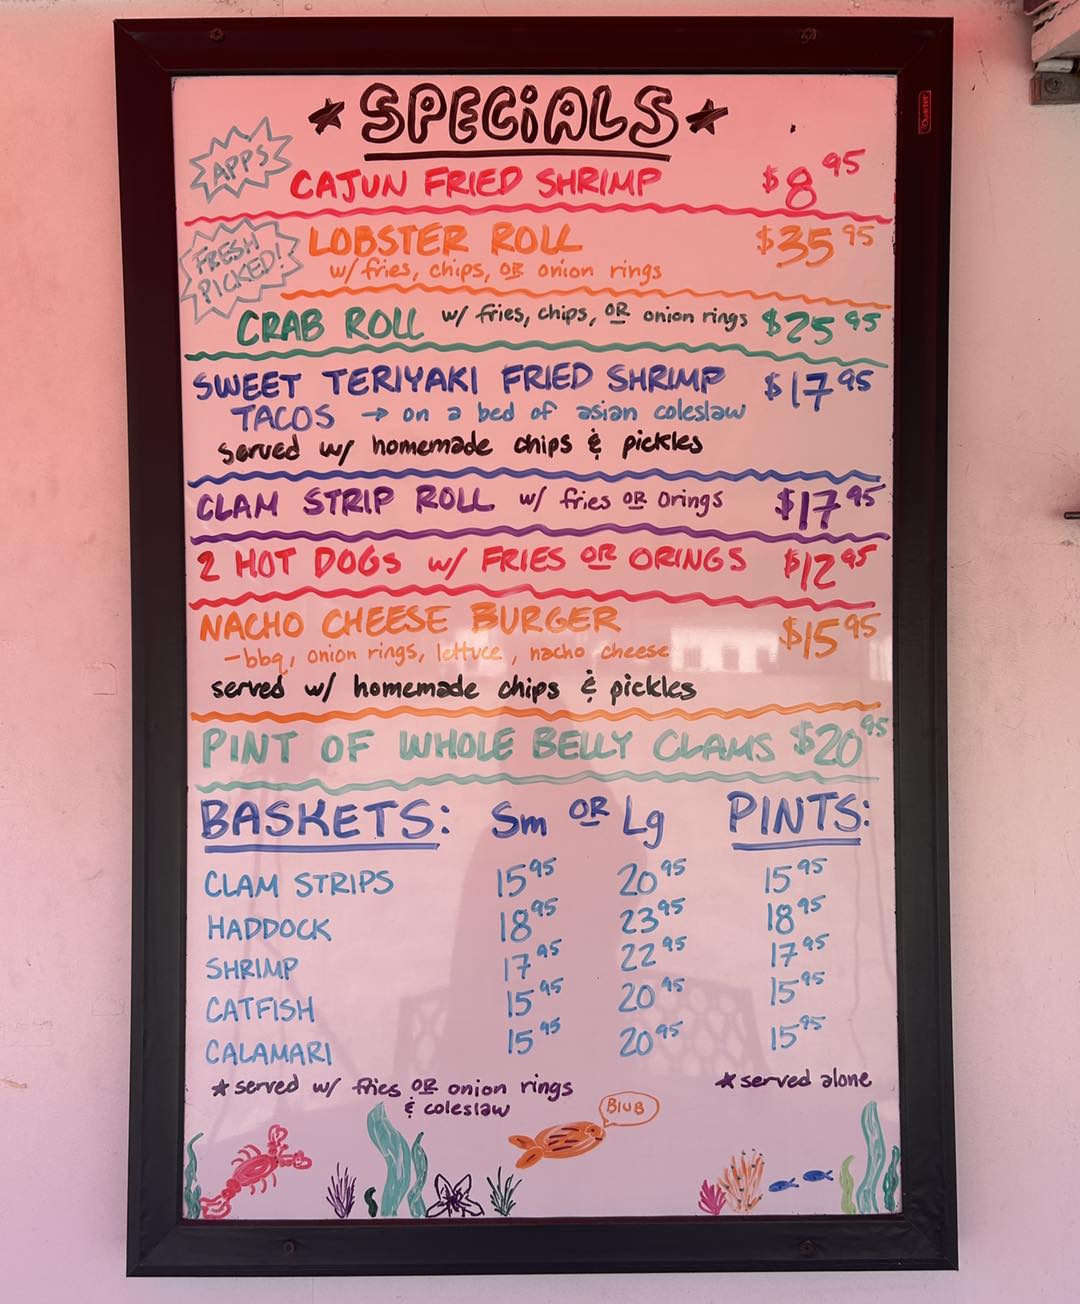 ★ SPECiALS ★
APPS
CAJUN FRIED SHRIMP $8 95
FRESH
PICKED!
LOBSTER ROLL $35 95
w/ fries, chips, OR onion rings
CRAB ROLL w/ fries, chips, OR onion rings $25 95
SWEET TERIYAKI FRIED SHRIMP $17 95
TACOS → on a bed of asian coleslaw
served w/ homemade chips & pickles
CLAM STRIP ROLL w/ fries OR Orings $17 95
2 HOT DOGS w/ FRIES OR ORINGS $12 95
NACHO CHEESE BURGER $15 95
- bbq, onion rings, lettuce, nacho cheese
served w/ homemade chips & pickles
PINT OF WHOLE BELLY CLAMS $20 95
BASKETS: Sm OR Lg PINTS:
CLAM STRIPS 15 95 20 95 15 95
HADDOCK 18 95 23 95 18 95
SHRIMP 17 95 22 95 17 95
CATFISH 15 95 20 95 15 95
CALAMARI 15 95 20 95 15 95
★ served w/ fries OR onion rings ★ served alone
& coleslaw
BluB
Quartet